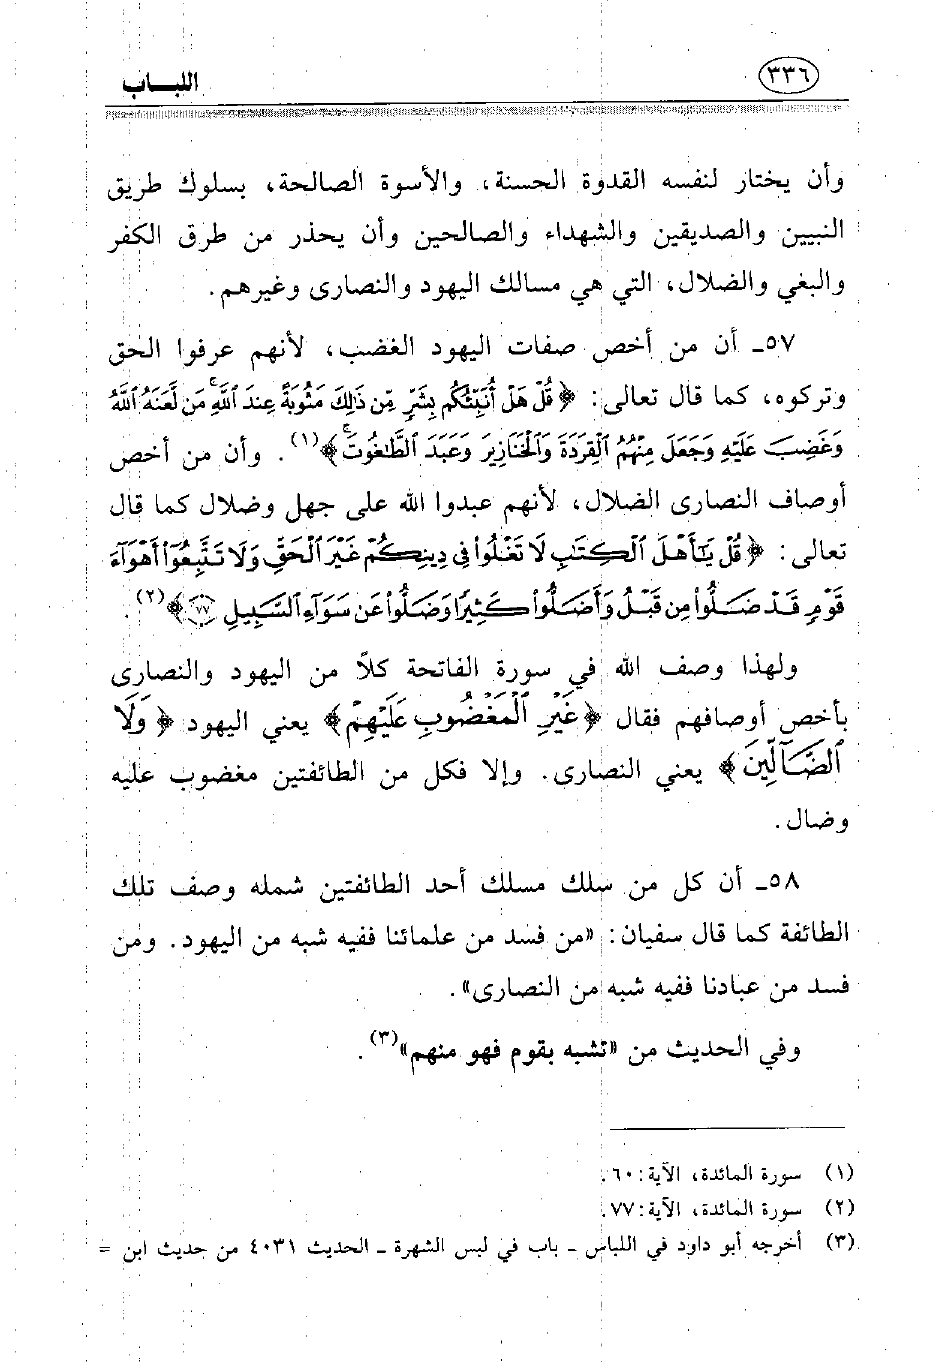 ٣٣٦
اللبـــاب
وأن يختار لنفسه القدوة الحسنة، والأسوة الصالحة، بسلوك طريق
النبيين والصديقين والشهداء والصالحين وأن يحذر من طرق الكفر
والبغي والضلال، التي هي مسالك اليهود والنصارى وغيرهم.
٥٧ـ أن من أخص صفات اليهود الغضب، لأنهم عرفوا الحق
وتركوه، كما قال تعالى: ﴿ قُلْ هَلْ أُنَبِّئُكُم بِشَرٍّ مِّن ذَٰلِكَ مَثُوبَةً عِندَ ٱللَّهِۚ مَن لَّعَنَهُ ٱللَّهُ
وَغَضِبَ عَلَيْهِ وَجَعَلَ مِنْهُمُ ٱلْقِرَدَةَ وَٱلْخَنَازِيرَ وَعَبَدَ ٱلطَّٰغُوتَۚ﴾(١). وأن من أخص
أوصاف النصارى الضلال، لأنهم عبدوا الله على جهل وضلال كما قال
تعالى: ﴿ قُلْ يَٰٓأَهْلَ ٱلْكِتَٰبِ لَا تَغْلُوا۟ فِى دِينِكُمْ غَيْرَ ٱلْحَقِّ وَلَا تَتَّبِعُوٓا۟ أَهْوَآءَ
قَوْمٍ قَدْ ضَلُّوا۟ مِن قَبْلُ وَأَضَلُّوا۟ كَثِيرًا وَضَلُّوا۟ عَن سَوَآءِ ٱلسَّبِيلِ ٧٧﴾(٢).
ولهذا وصف الله في سورة الفاتحة كلاً من اليهود والنصارى
بأخص أوصافهم فقال ﴿غَيْرِ ٱلْمَغْضُوبِ عَلَيْهِمْ﴾ يعني اليهود ﴿ وَلَا
ٱلضَّآلِّينَ﴾ يعني النصارى. وإلا فكل من الطائفتين مغضوب عليه
وضال.
٥٨ـ أن كل من سلك مسلك أحد الطائفتين شمله وصف تلك
الطائفة كما قال سفيان: «من فسد من علمائنا ففيه شبه من اليهود. ومن
فسد من عبادنا ففيه شبه من النصارى».
وفي الحديث من «تشبه بقوم فهو منهم»(٣).
(١) سورة المائدة، الآية: ٦٠.
(٢) سورة المائدة، الآية: ٧٧.
(٣) أخرجه أبو داود في اللباس ـ باب في لبس الشهرة ـ الحديث ٤٠٣١ من حديث ابن =